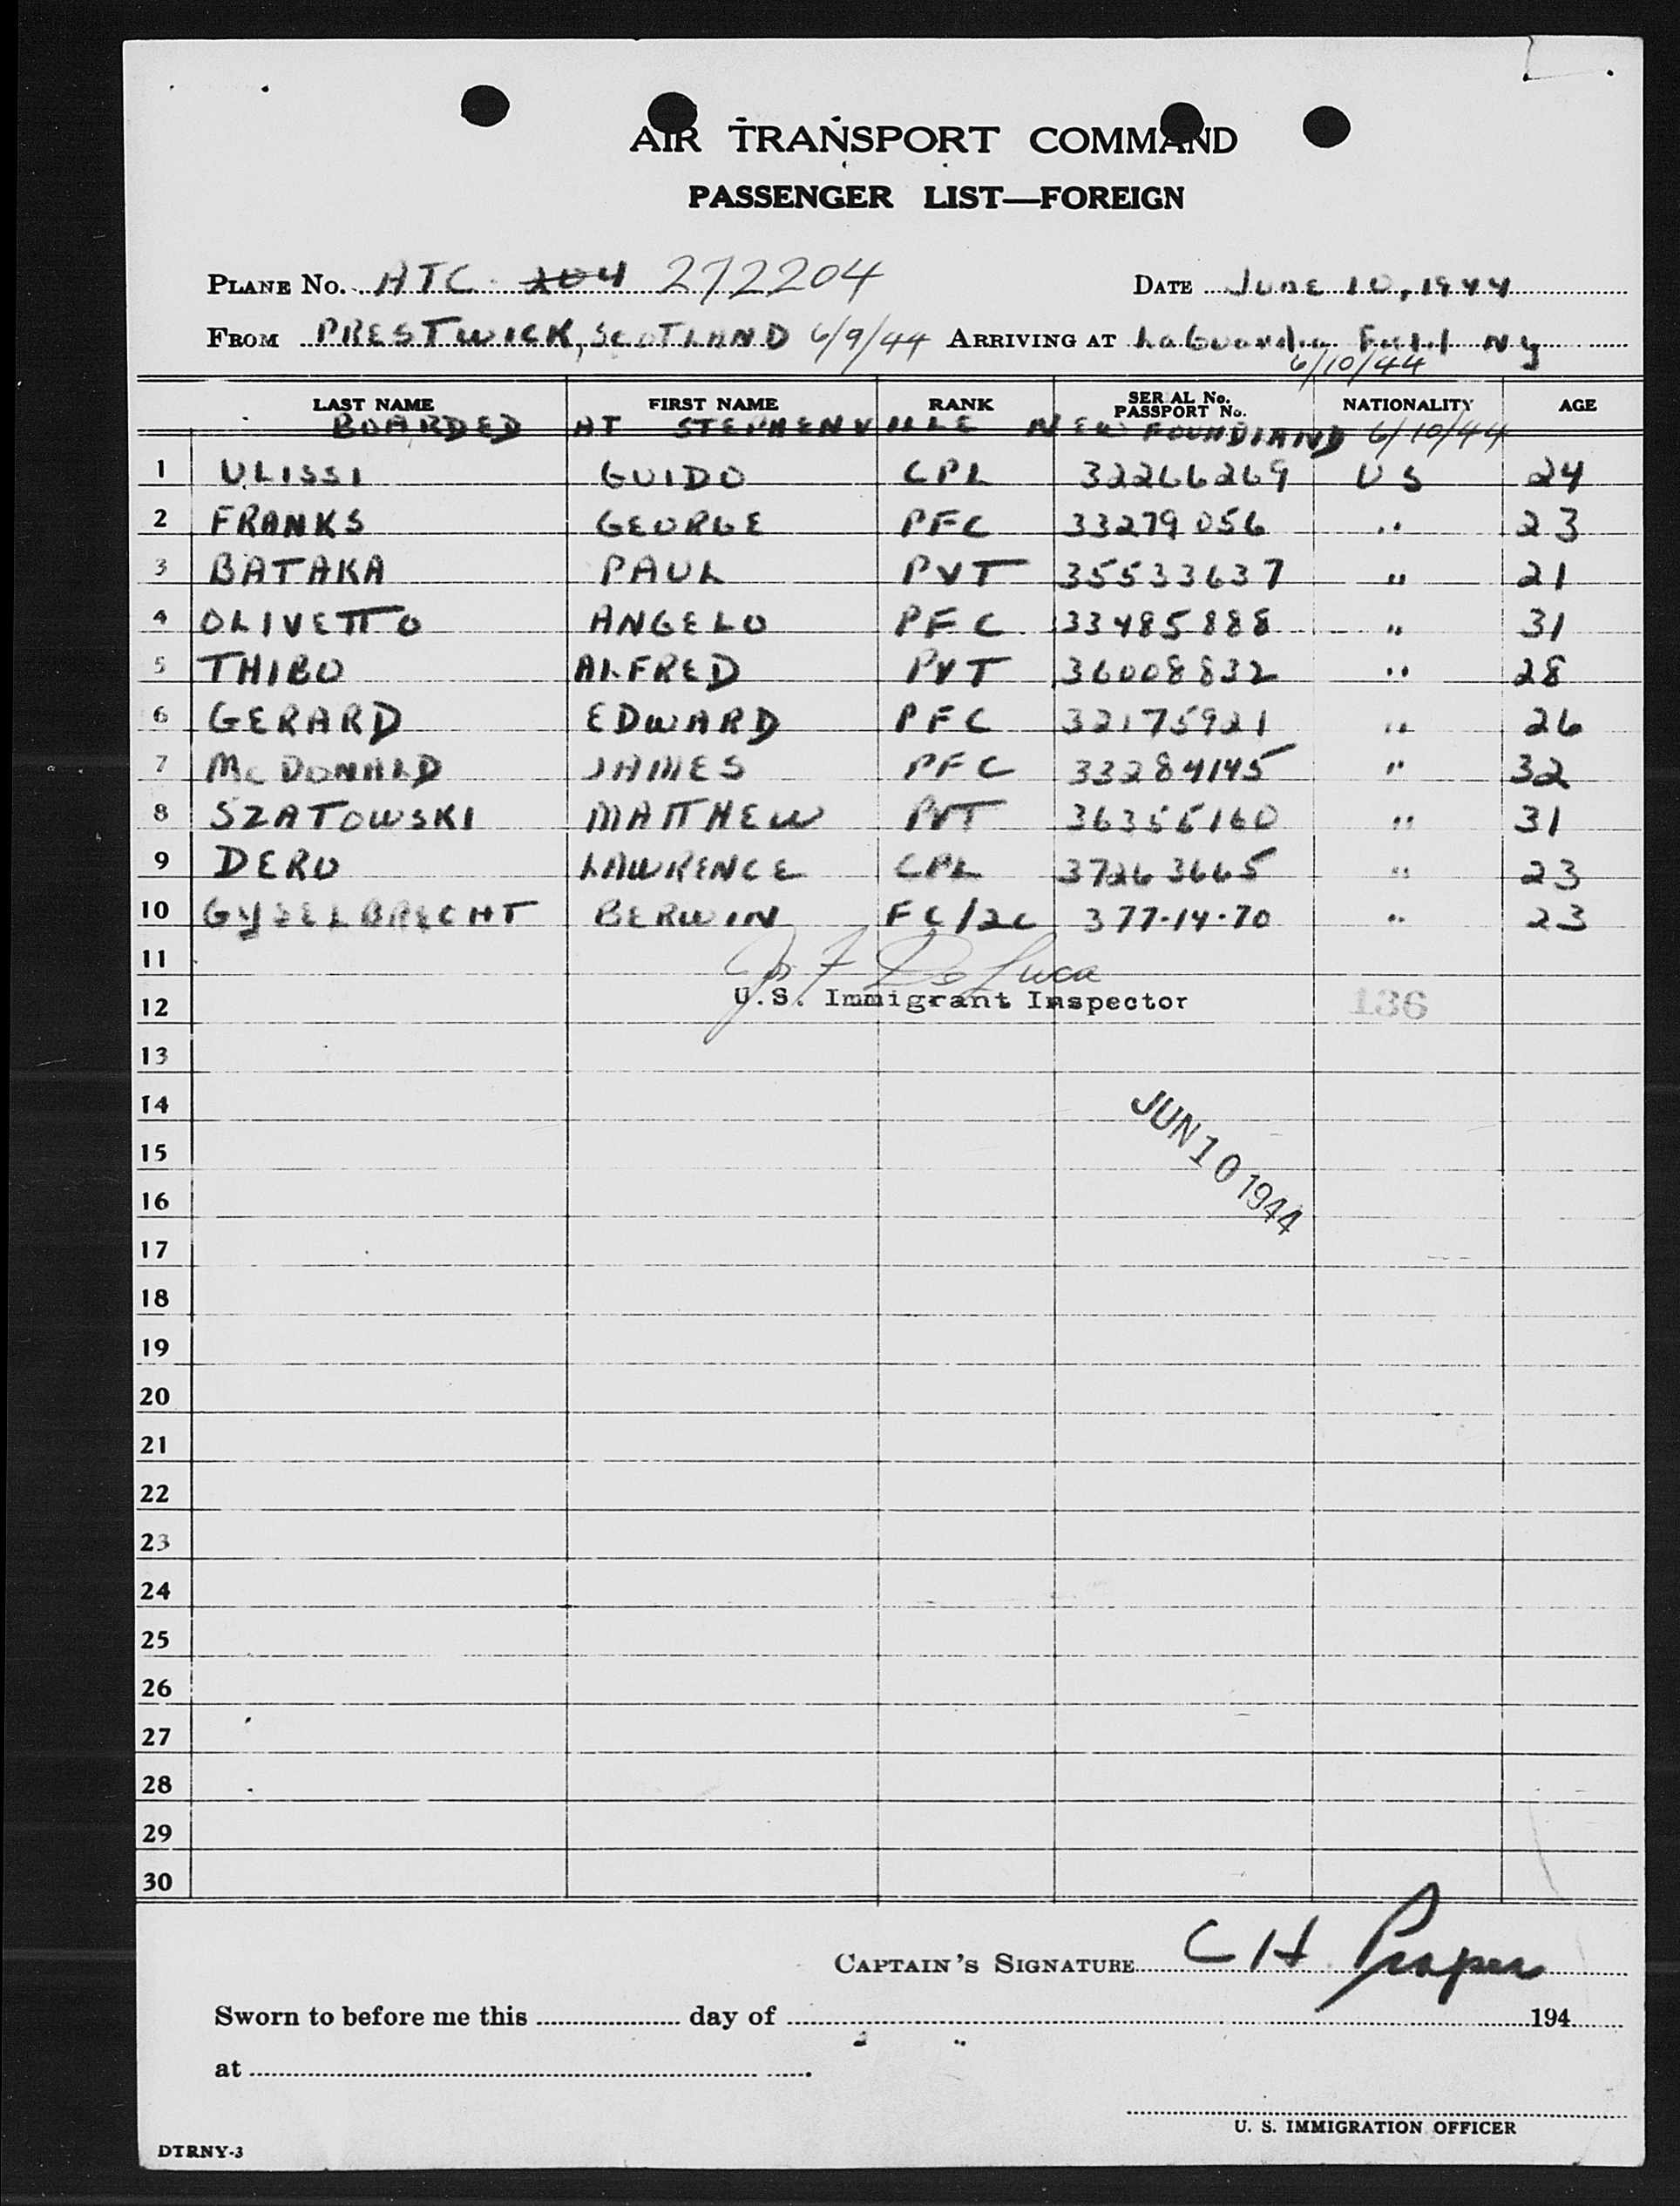 AIR TRANSPORT COMMAND
PASSENGER LIST—FOREIGN
PLANE No. ATC 204 272204 DATE June 10, 1944
FROM PRESTWICK, SCOTLAND 6/9/44 ARRIVING AT LaGuardia Field NY
6/10/44
LAST NAME FIRST NAME RANK SERIAL No. PASSPORT No. NATIONALITY AGE
BOARDED AT STEPHENVILLE NEWFOUNDLAND 6/10/44
1 ULISSI GUIDO CPL 32266269 US 24
2 FRANKS GEORGE PFC 33279056 " 23
3 BATAKA PAUL PVT 35533637 " 21
4 OLIVETTO ANGELO PFC 33485888 " 31
5 THIBO ALFRED PVT 36008832 " 28
6 GERARD EDWARD PFC 32175921 " 26
7 McDONALD JAMES PFC 33284145 " 32
8 SZATOWSKI MATTHEW PVT 36355160 " 31
9 DERO LAWRENCE CPL 37263665 " 23
10 GYSELBRECHT BERWIN FC/2C 377-14-70 " 23
11 Jos F De Luca
12 U.S. Immigrant Inspector 136
13
14
JUN 10 1944
15
16
17
18
19
20
21
22
23
24
25
26
27
28
29
30
CAPTAIN'S SIGNATURE C H
Sworn to before me this day of 194
at
U. S. IMMIGRATION OFFICER
DTRNY-3